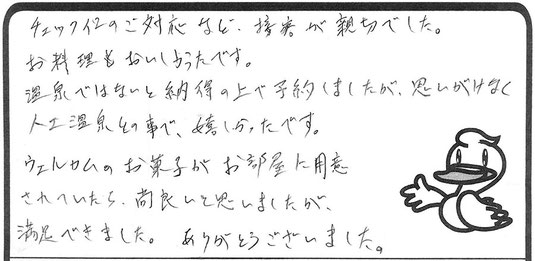 チェックインのご対応など、接客が親切でした。
お料理もおいしかったです。
温泉ではないと納得の上で予約しましたが、思いがけなく
人工温泉との事で、嬉しかったです。
ウェルカムのお菓子がお部屋に用意
されていたら、尚良いと思いましたが、
満足できました。 ありがとうございました。